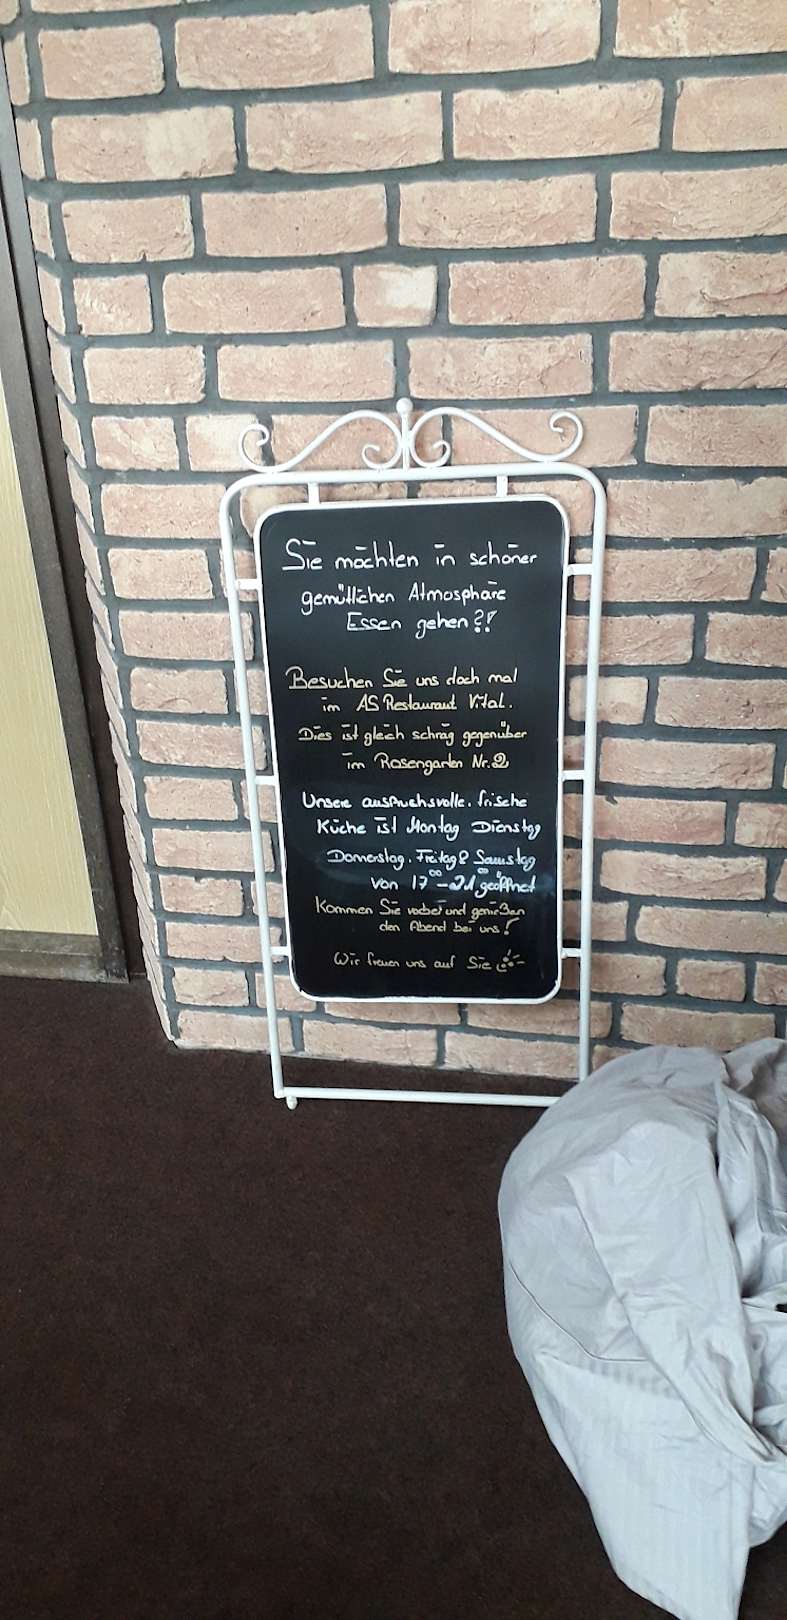 Sie möchten in schöner
gemütlichen Atmosphäre
Essen gehen?!
Besuchen Sie uns doch mal
im AS Restaurant Vital.
Dies ist gleich schräg gegenüber
im Rosengarten Nr.2
Unsere anspruchsvolle, frische
Küche ist Montag Dienstag
Donnerstag, Freitag & Samstag
von 17⁰⁰-21⁰⁰ geöffnet
Kommen Sie vorbei und genießen
den Abend bei uns!
Wir freuen uns auf Sie